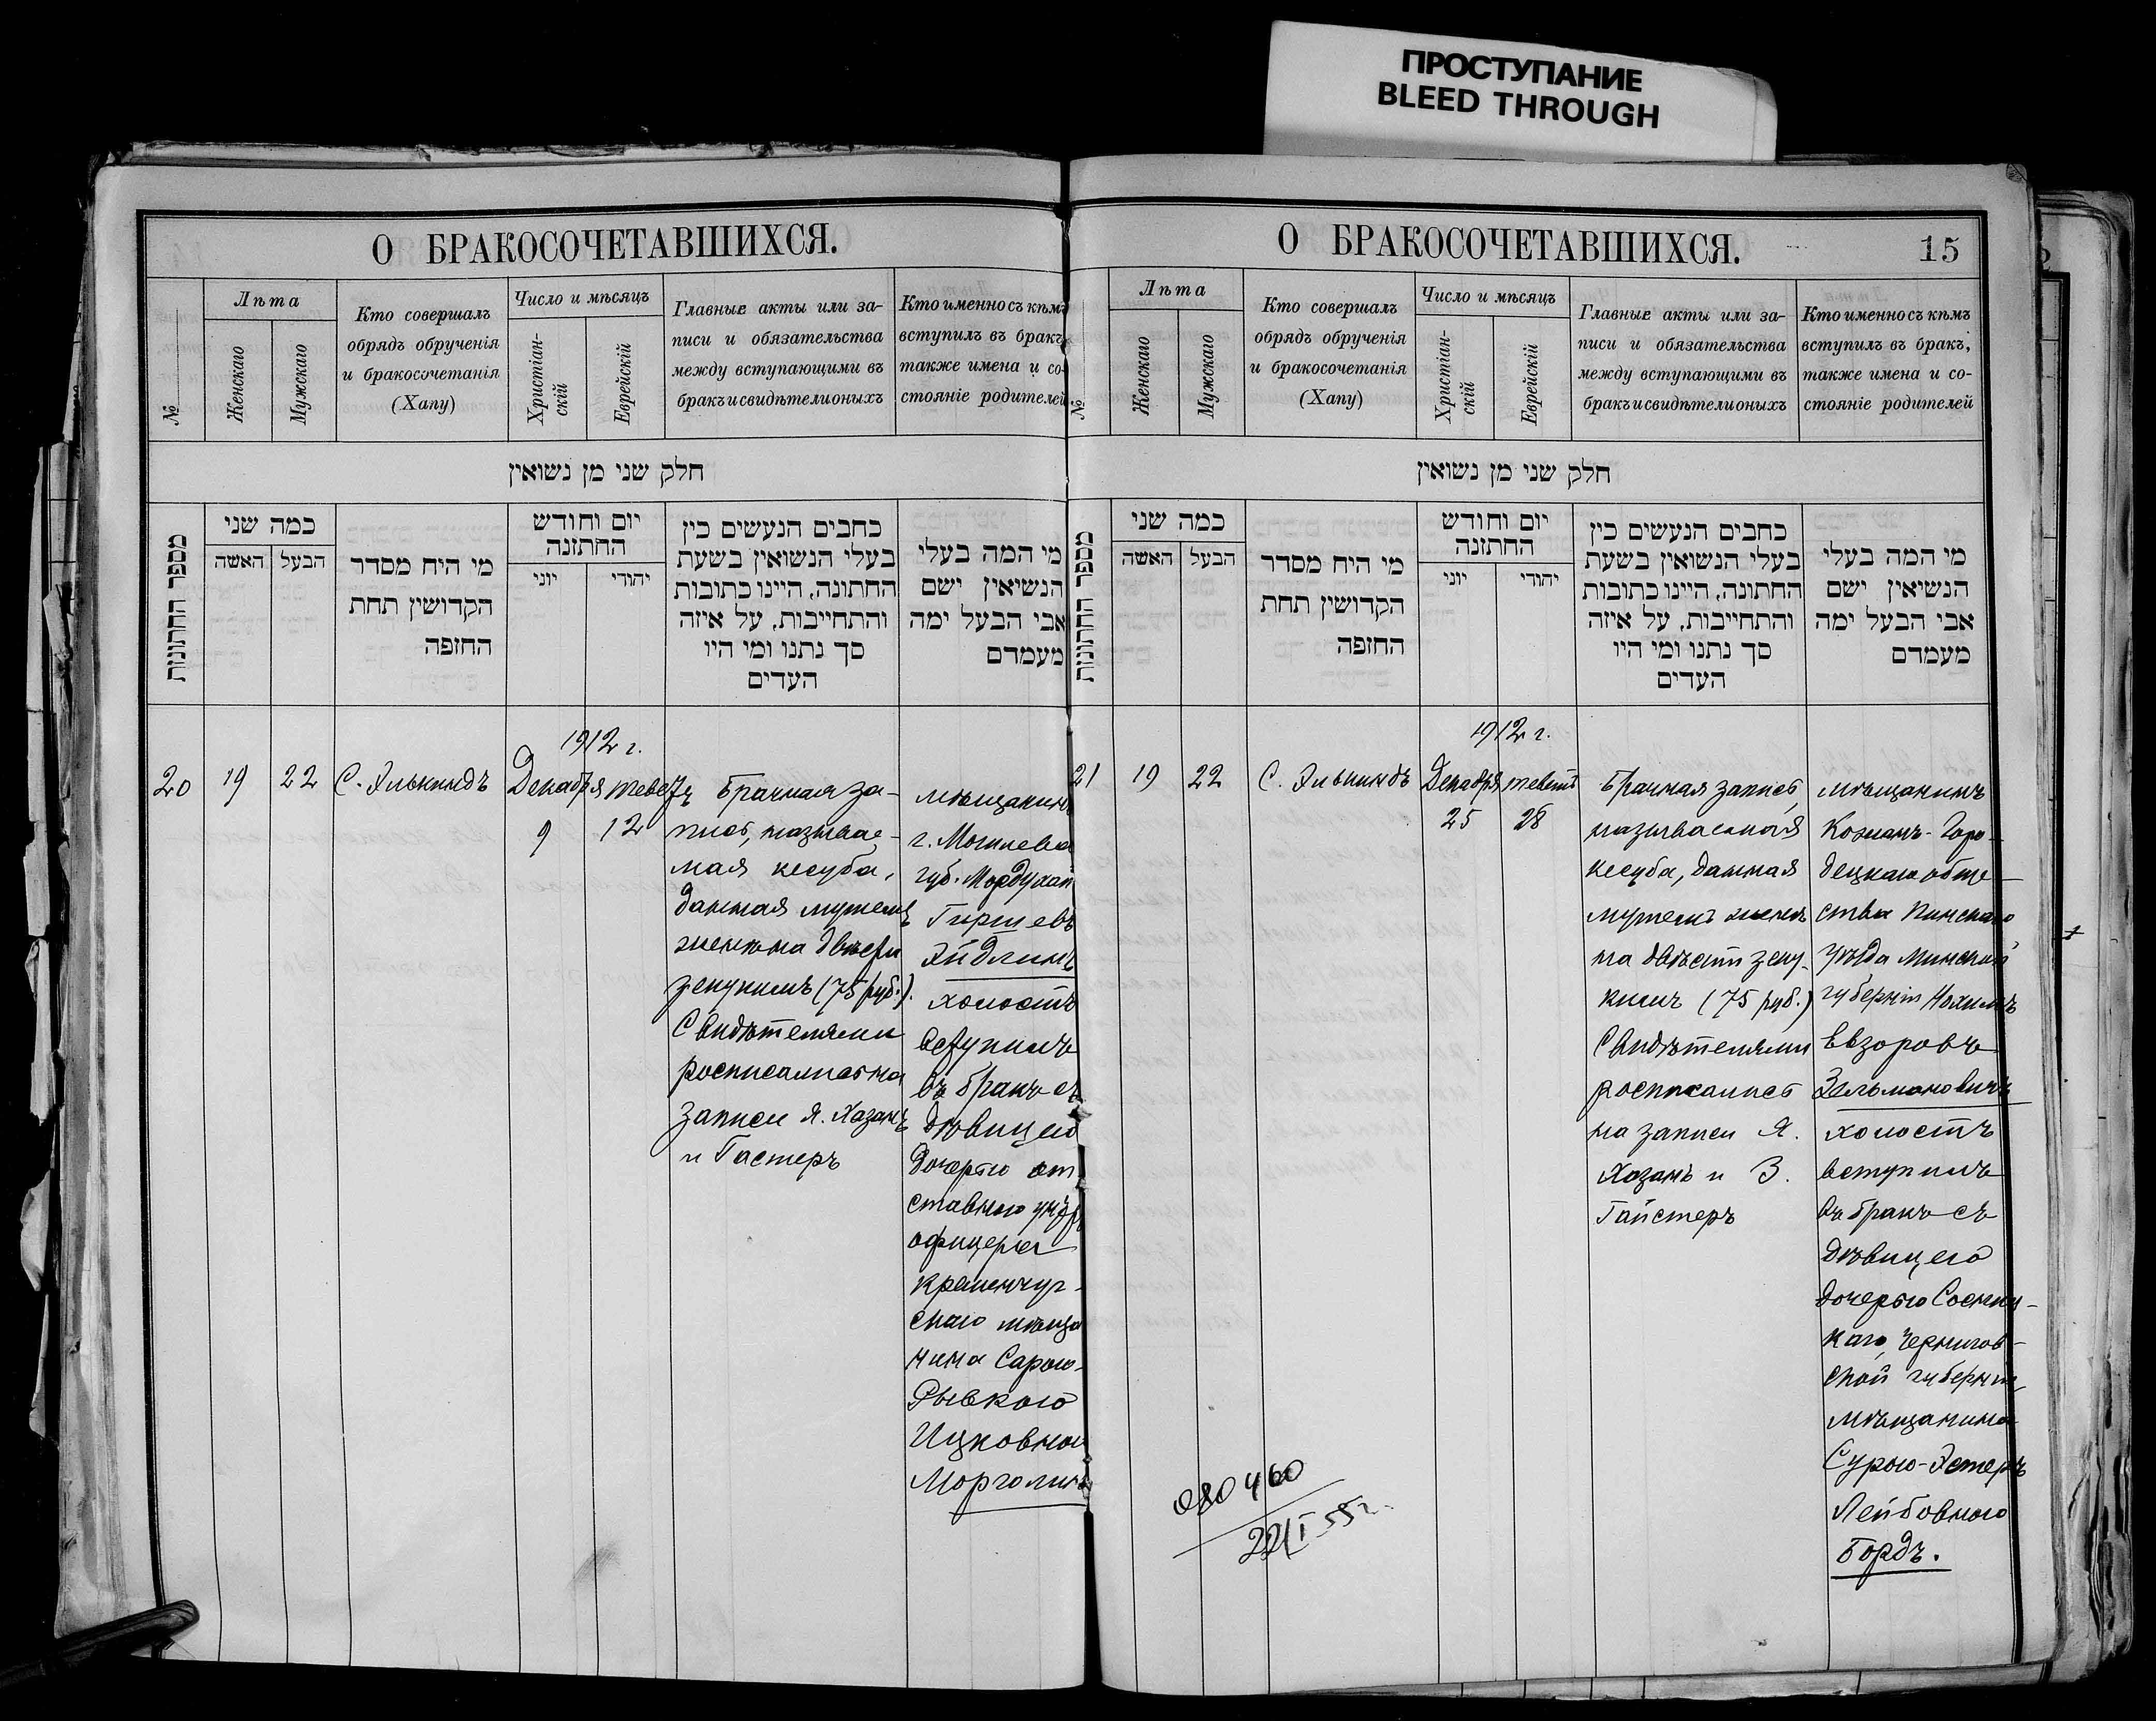 ПРОСТУПАНИЕ
BLEED THROUGH
О БРАКОСОЧЕТАВШИХСЯ.
№
Лѣта
Женскаго
Мужскаго
Кто совершалъ
обрядъ обрученія
и бракосочетанія
(Хапу)
Число и мѣсяцъ
Христіан-
скій
Еврейскій
Главные акты или за-
писи и обязательства
между вступающими въ
бракъ и свидѣтели оныхъ
Кто именно съ кѣмъ
вступилъ въ бракъ,
также имена и со-
стояніе родителей
חלק שני מן נשואין
מספר החתונות
כמה שני
האשה
הבעל
מי היח מסדר
הקדושין תחת
החזפה
יום וחודש
החתזנה
יוני
יהודי
כחבים הנעשים כין
בעלי הנשואין בשעת
החתונה, היינו כתובות
והתחייבות, על איזה
סך נתנו ומי היו
העדים
מי המה בעלי
הנשיאין ישם
אבי הבעל ימה
מעמדם
20
19
22
С. Элькиндъ
1912 г.
Декабря
9
Теветъ
12
Брачная за-
пись, называе-
мая кесуба,
данная мужемъ
женѣ на двѣсти
зекукимъ (75 руб.).
Свидѣтелями
росписались на
записи Я. Хазанъ
и Гастеръ
мѣщанинъ
г. Могилева
губ. Мордухай
Гиршевъ
Эйдлинъ
холостъ
вступилъ
въ бракъ съ
дѣвицею
дочерью от
ставного унтеръ
офицера
кременчуг-
скаго мѣща
нина Сарою-
Рывкою
Ицковною
Морголинъ
О БРАКОСОЧЕТАВШИХСЯ.
15
№
Лѣта
Женскаго
Мужскаго
Кто совершалъ
обрядъ обрученія
и бракосочетанія
(Хапу)
Число и мѣсяцъ
Христіан-
скій
Еврейскій
Главные акты или за-
писи и обязательства
между вступающими въ
бракъ и свидѣтели оныхъ
Кто именно съ кѣмъ
вступилъ въ бракъ,
также имена и со-
стояніе родителей
חלק שני מן נשואין
מספר החתונות
כמה שני
האשה
הבעל
מי היח מסדר
הקדושין תחת
החזפה
יום וחודש
החתזנה
יוני
יהודי
כחבים הנעשים כין
בעלי הנשואין בשעת
החתונה, היינו כתובות
והתחייבות, על איזה
סך נתנו ומי היו
העדים
מי המה בעלי
הנשיאין ישם
אבי הבעל ימה
מעמדם
21
19
22
С. Элькиндъ
1912 г.
Декабря
25
Теветъ
28
Брачная запись,
называемая
кесуба, данная
мужемъ женѣ
на двѣсти зеку-
кимъ (75 руб.)
Свидѣтелями
росписались
на записи Я.
Хазанъ и З.
Гайстеръ
мѣщанинъ
Кожанъ-Горо-
децкаго обще-
ства Пинскаго
уѣзда Минской
губерніи Нохимъ
Евзоровъ
Зельмановичъ
холостъ
вступилъ
въ бракъ съ
дѣвицею
дочерью Сосниц-
каго, Чернигов-
ской губерніи
мѣщанина
Сурою-Эстеръ
Лейбовною
Бордъ.
080460
22/I 55 г.